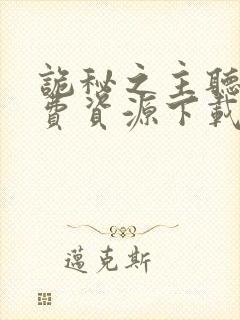 詭秘之主聽
費資源下載
邁克斯